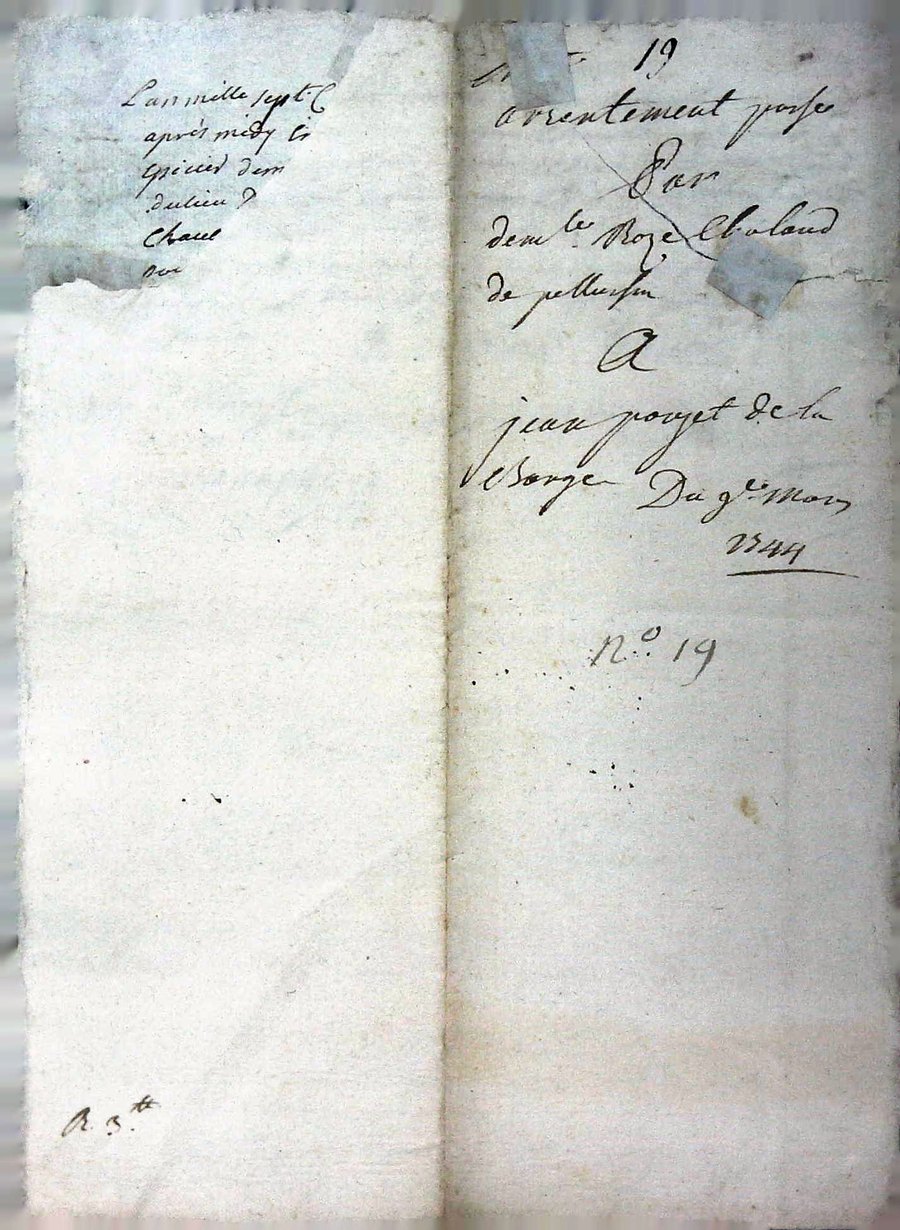 L'an mille sept. C
après midy
epicier dem
du lieu D
Chave
R. 3.tt
19
arrentement passé
Par
demlle Roze Chaland
de pellussin
A
jean pouget de la
Barge Du 9e mars
1744
No. 19